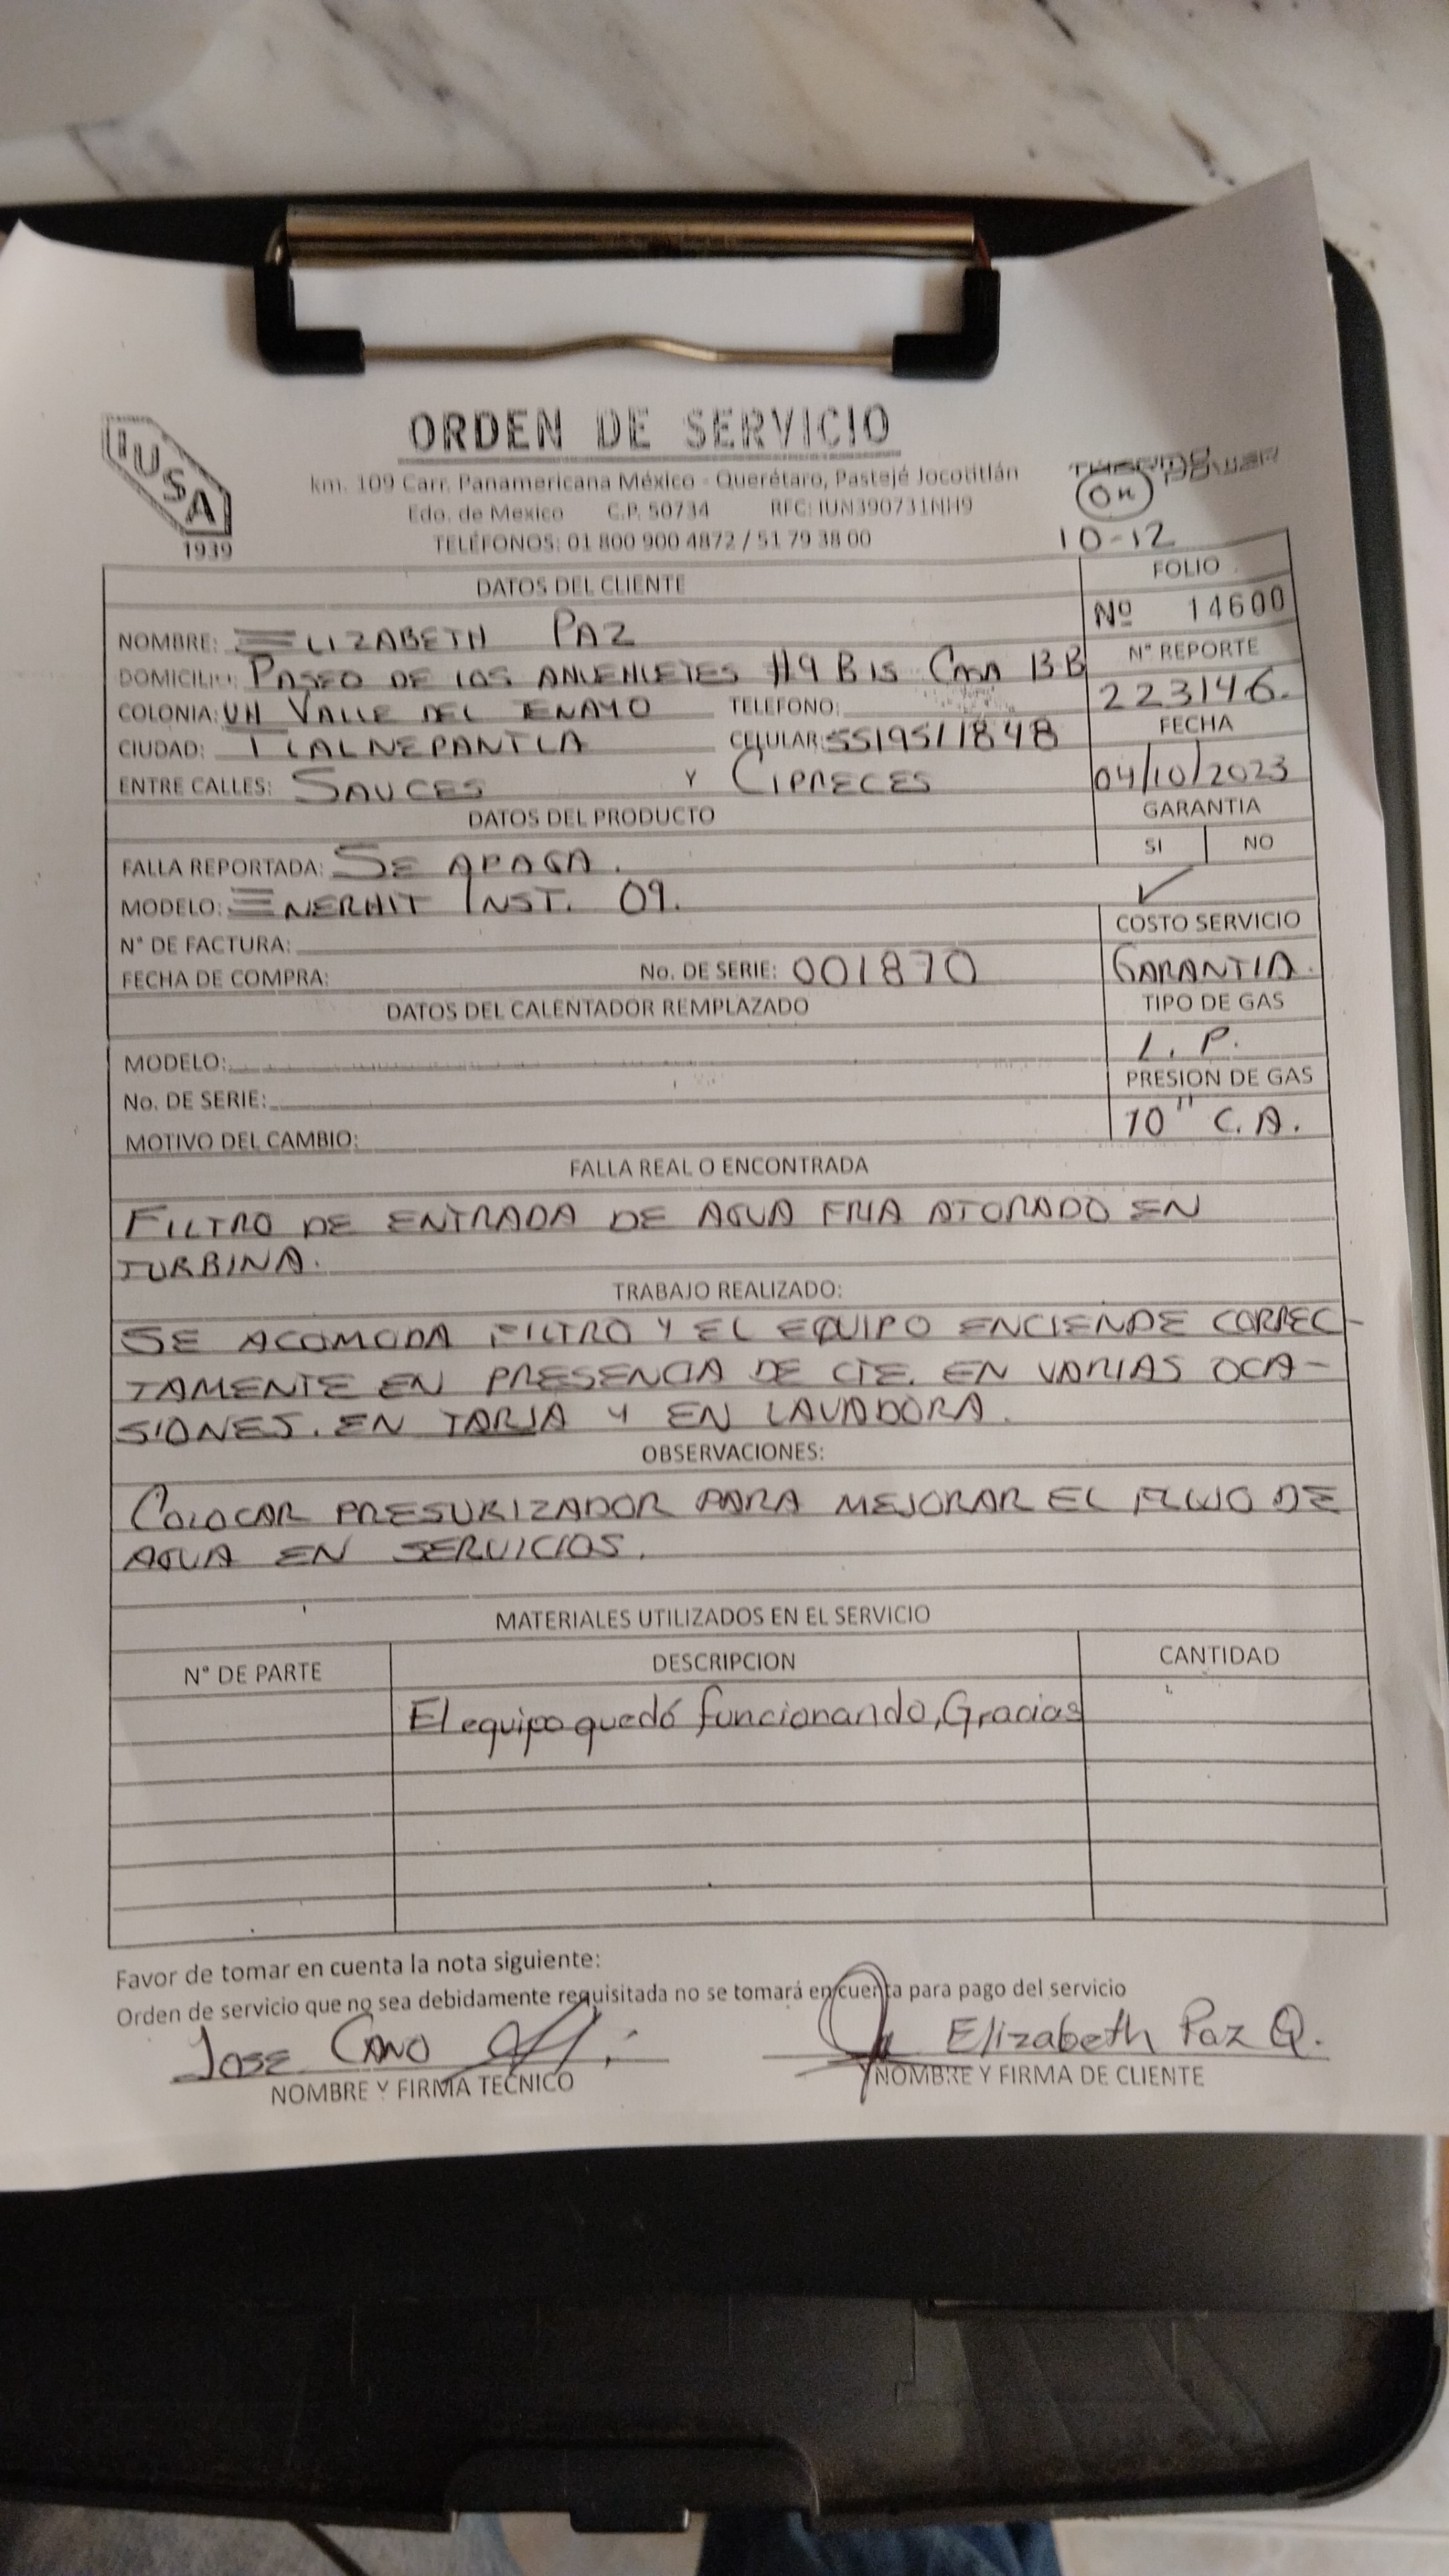 IUSA
1939
ORDEN DE SERVICIO
km. 109 Carr. Panamericana México - Querétaro, Pastejé Jocotitlán
Edo. de Mexico C.P. 50734 RFC: IUN390731NH9
TELÉFONOS: 01 800 900 4872 / 51 79 38 00
10-12
DATOS DEL CLIENTE
FOLIO
Nº 14600
NOMBRE: ELIZABETH PAZ
Nº REPORTE
DOMICILIO: PASEO DE LOS #9 BIS CASA 13-B
223146.
COLONIA: UH VALLE DEL TENAYO TELEFONO:
FECHA
CIUDAD: TLALNEPANTLA CELULAR: 5519511848
04/10/2023
ENTRE CALLES: SAUCES Y CIPRECES
GARANTIA
DATOS DEL PRODUCTO
SI NO
FALLA REPORTADA: SE APAGA.
✓
MODELO: INST. 09.
COSTO SERVICIO
N° DE FACTURA:
GARANTIA.
FECHA DE COMPRA: No. DE SERIE: 001870
TIPO DE GAS
DATOS DEL CALENTADOR REMPLAZADO
L. P.
MODELO:
PRESION DE GAS
No. DE SERIE:
10" C.A.
MOTIVO DEL CAMBIO:
FALLA REAL O ENCONTRADA
FILTRO DE ENTRADA DE AGUA FRIA ATORADO EN
TURBINA.
TRABAJO REALIZADO:
SE ACOMODA FILTRO Y EL EQUIPO ENCIENDE CORREC-
TAMENTE EN PRESENCIA DE CTE. EN VARIAS OCA-
SIONES. EN TARJA Y EN LAVADORA.
OBSERVACIONES:
COLOCAR PRESURIZADOR PARA MEJORAR EL FLUJO DE
AGUA EN SERVICIOS.
MATERIALES UTILIZADOS EN EL SERVICIO
N° DE PARTE DESCRIPCION CANTIDAD
El equipo quedó funcionando, Gracias
Favor de tomar en cuenta la nota siguiente:
Orden de servicio que no sea debidamente requisitada no se tomará en cuenta para pago del servicio
JOSE CANO
Elizabeth Paz Q.
NOMBRE Y FIRMA TECNICO
NOMBRE Y FIRMA DE CLIENTE